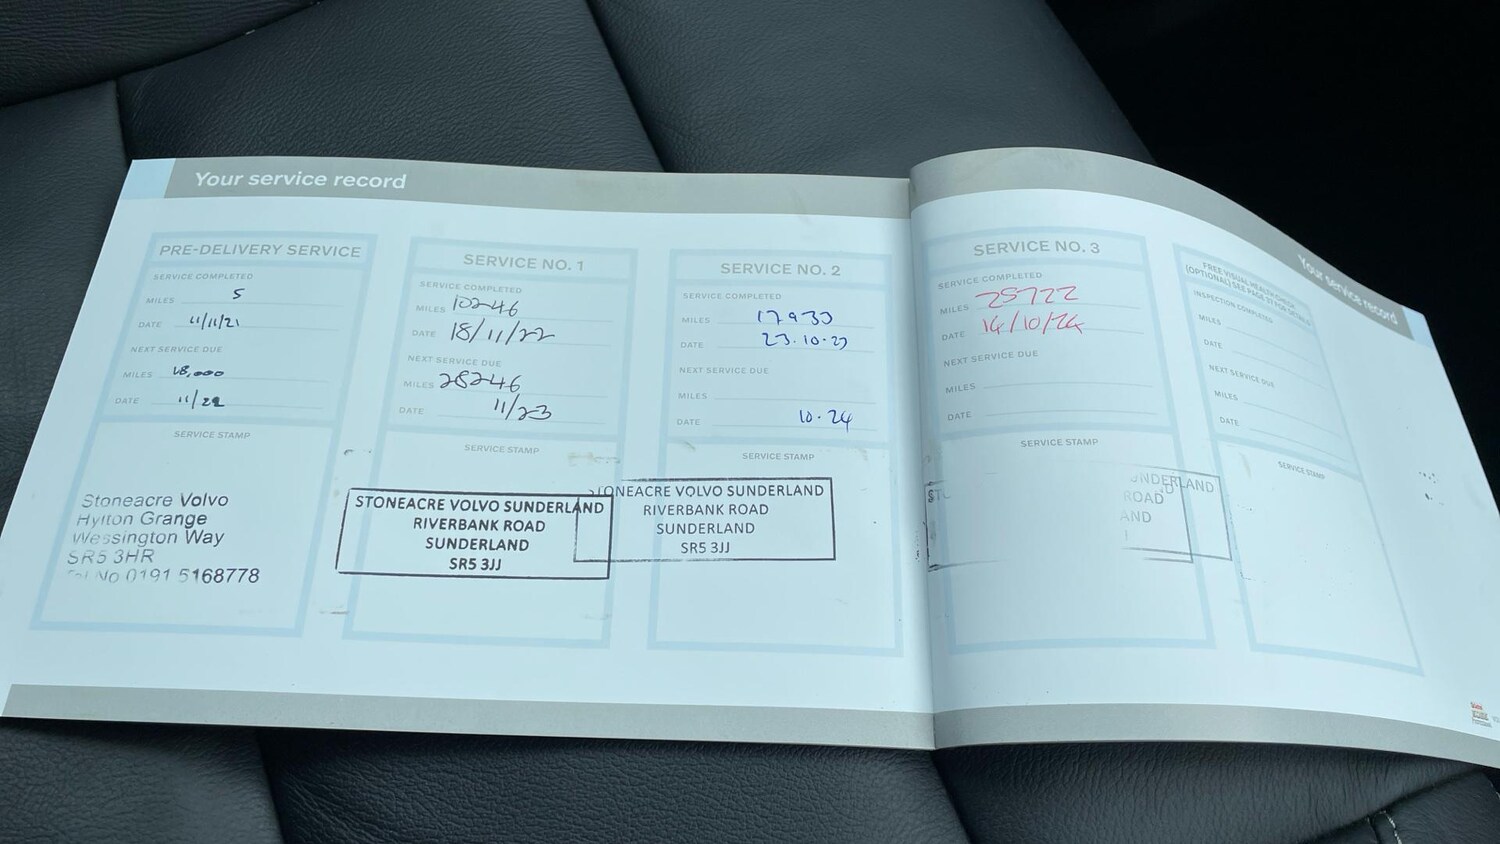 Your service record
PRE-DELIVERY SERVICE
SERVICE COMPLETED
MILES 5
DATE 11/11/21
NEXT SERVICE DUE
MILES 18,000
DATE 11/22
SERVICE STAMP
Stoneacre Volvo
Hylton Grange
Wessington Way
SR5 3HR
Tel No 0191 5168778
SERVICE NO. 1
SERVICE COMPLETED
MILES 10246
DATE 18/11/22
NEXT SERVICE DUE
MILES 28246
DATE 11/23
SERVICE STAMP
STONEACRE VOLVO SUNDERLAND
RIVERBANK ROAD
SUNDERLAND
SR5 3JJ
SERVICE NO. 2
SERVICE COMPLETED
MILES 17933
DATE 23.10.23
NEXT SERVICE DUE
MILES
DATE 10.24
SERVICE STAMP
STONEACRE VOLVO SUNDERLAND
RIVERBANK ROAD
SUNDERLAND
SR5 3JJ
SERVICE NO. 3
SERVICE COMPLETED
MILES 25722
DATE 14/10/24
NEXT SERVICE DUE
MILES
DATE
SERVICE STAMP
UNDERLAND
ROAD
AND
Your service record
FREE VISUAL HEALTH CHECK
(OPTIONAL) SEE PAGE 37 FOR DETAILS
INSPECTION COMPLETED
MILES
DATE
NEXT SERVICE DUE
MILES
DATE
SERVICE STAMP